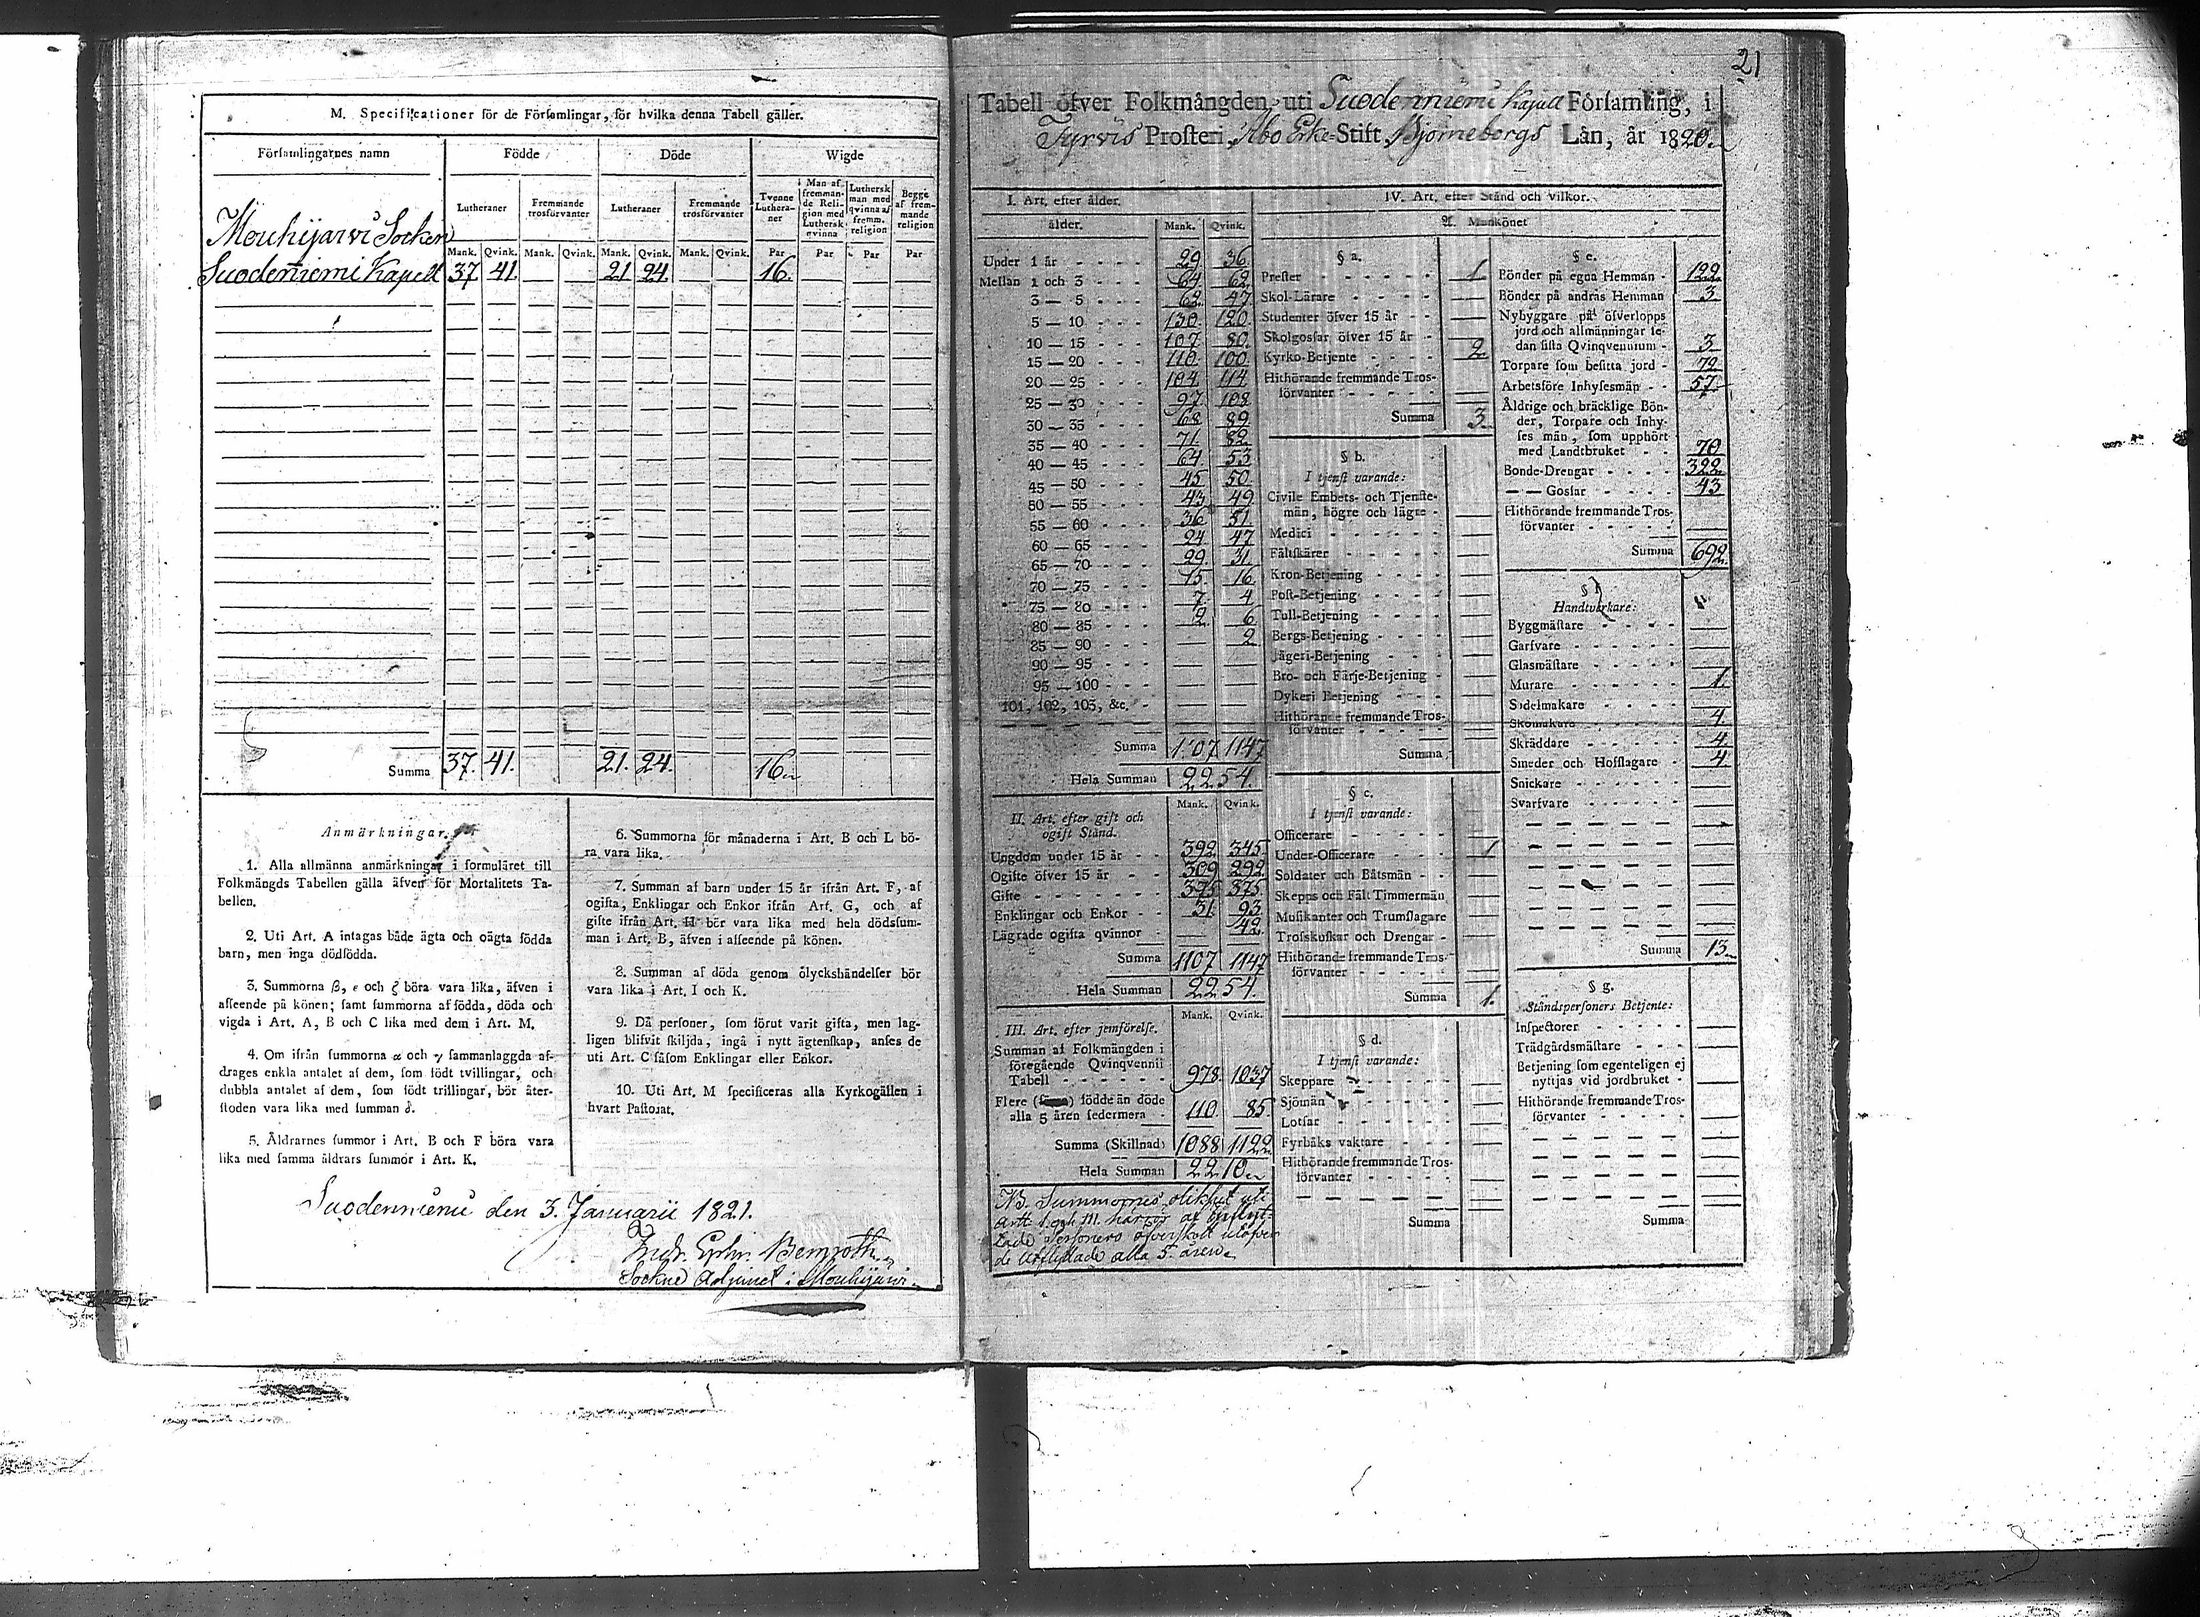 M. Specificationer för de Församlingar, för hvilka denna Tabell gäller.
Församlingarnes namn Födde Döde Wigde
Lutheraner Fremmande trosförvanter Lutheraner Fremmande trosförvanter Tvenne Lutheraner Man af fremmande Religion med Luthersk qvinna Luthersk man med qvinna af fremm. religion Begge af fremmande religion
Mank. Qvink. Mank. Qvink. Mank. Qvink. Mank. Qvink. Par Par Par Par
Mouhijärvi Socken
Suodeniemi Kapell 37. 41. 21. 24. 16.
Summa 37. 41. 21. 24. 16.
Anmärkningar.
1. Alla allmänna anmärkningar i formuläret till
Folkmängds Tabellen gälla äfven för Mortalitets Ta-
bellen.
2. Uti Art. A intagas både ägta och oägta födda
barn, men inga dödfödda.
3. Summorna β, ε och ζ böra vara lika, äfven i
afseende på könen; samt summorna af födda, döda och
vigda i Art. A, B och C lika med dem i Art. M.
4. Om ifrån summorna α och γ sammanlaggda af-
drages enkla antalet af dem, som födt tvillingar, och
dubbla antalet af dem, som födt trillingar, bör åter-
stoden vara lika med summan δ.
5. Åldrarnes summor i Art. B och F böra vara
lika med samma åldrars summor i Art. K.
6. Summorna för månaderna i Art. B och L bö-
ra vara lika.
7. Summan af barn under 15 år ifrån Art. F, af
ogifta, Enklingar och Enkor ifrån Art. G, och af
gifte ifrån Art. H bör vara lika med hela dödssum-
man i Art. B, äfven i afseende på könen.
8. Summan af döda genom olyckshändelser bör
vara lika i Art. I och K.
9. Då personer, som förut varit gifta, men lag-
ligen blifvit skiljda, ingå i nytt ägtenskap, anses de
uti Art. C såsom Enklingar eller Enkor.
10. Uti Art. M specificeras alla Kyrkogällen i
hvart Pastorat.
Suodenniemi den 3. Januarii 1821.
Andr. Ephr. Bemroth
Sockne Adjunct i Mouhijärvi
21
Tabell öfver Folkmängden, uti Suodenniemi Kapell Församling, i
Tyrvis Prosteri, Åbo Erke-Stift, Björneborgs Län, år 1820.
I. Art. efter ålder.
ålder. Mank. Qvink.
Under 1 år 29 36
Mellan 1 och 3 64 62
3 — 5 62 47
5 — 10 130 120
10 — 15 107 80
15 — 20 110 100
20 — 25 104 114
25 — 30 97 108
30 — 35 68 89
35 — 40 71 82
40 — 45 64 53
45 — 50 45 50
50 — 55 43 49
55 — 60 36 51
60 — 65 24 47
65 — 70 29 31
70 — 75 15 16
75 — 80 7 4
80 — 85 2 6
85 — 90 2
90 — 95
95 — 100
101, 102, 103, &c.
Summa 1107 1147
Hela Summan 2254.
II. Art. efter gift och ogift Stånd. Mank. Qvink.
Ungdom under 15 år 392 345
Ogifte öfver 15 år 309 292
Gifte 375 375
Enklingar och Enkor 31 93
Lägrade ogifta qvinnor 42
Summa 1107 1147
Hela Summan 2254.
III. Art. efter jemförelse. Mank. Qvink.
Summan af Folkmängden i
föregående Qvinqvennii
Tabell 978 1037
Flere födde än döde
alla 5 åren sedermera 110 85
Summa (Skillnad) 1088 1122
Hela Summan 2210
NB. Summornes olikhet uti
Artt. I och III. härrör af inflyt-
tade Personers öfverskott utöfver
de utflyttade alla 5 åren.
IV. Art. efter Stånd och vilkor.
A. Mankönet
§ a.
Prester 1
Skol-Lärare
Studenter öfver 15 år
Skolgossar öfver 15 år
Kyrko-Betjente 2
Hithörande fremmande Tros-
förvanter
Summa 3.
§ b.
I tjenst varande:
Civile Embets- och Tjenste-
män, högre och lägre
Medici
Fältskärer
Kron-Betjening
Post-Betjening
Tull-Betjening
Bergs-Betjening
Jägeri-Betjening
Bro- och Färje-Betjening
Dykeri Betjening
Hithörande fremmande Tros-
förvanter
Summa
§ c.
I tjenst varande:
Officerare
Under-Officerare 1
Soldater och Båtsmän
Skepps och Fält Timmermän
Musikanter och Trumslagare
Trosskuskar och Drengar
Hithörande fremmande Tros-
förvanter
Summa 1.
§ d.
I tjenst varande:
Skeppare
Sjömän
Lotsar
Fyrbåks vaktare
Hithörande fremmande Tros-
förvanter
Summa
§ e.
Bönder på egna Hemman 122
Bönder på andras Hemman 3
Nybyggare på öfverlopps
jord och allmänningar se-
dan sista Qvinqvennium 3
Torpare som besitta jord 72
Arbetsföre Inhysesmän 57
Åldrige och bräcklige Bön-
der, Torpare och Inhy-
ses män, som upphört
med Landtbruket 70
Bonde-Drengar 322
— — Gossar 43
Hithörande fremmande Tros-
förvanter
Summa 692.
§ f.
Handtverkare:
Byggmästare
Garfvare
Glasmästare
Murare 1
Sadelmakare
Skomakare 4
Skräddare 4
Smeder och Hofslagare 4
Snickare
Svarfvare
Summa 13.
§ g.
Ståndspersoners Betjente:
Inspectorer
Trädgårdsmästare
Betjening som egenteligen ej
nyttjas vid jordbruket
Hithörande fremmande Tros-
förvanter
Summa